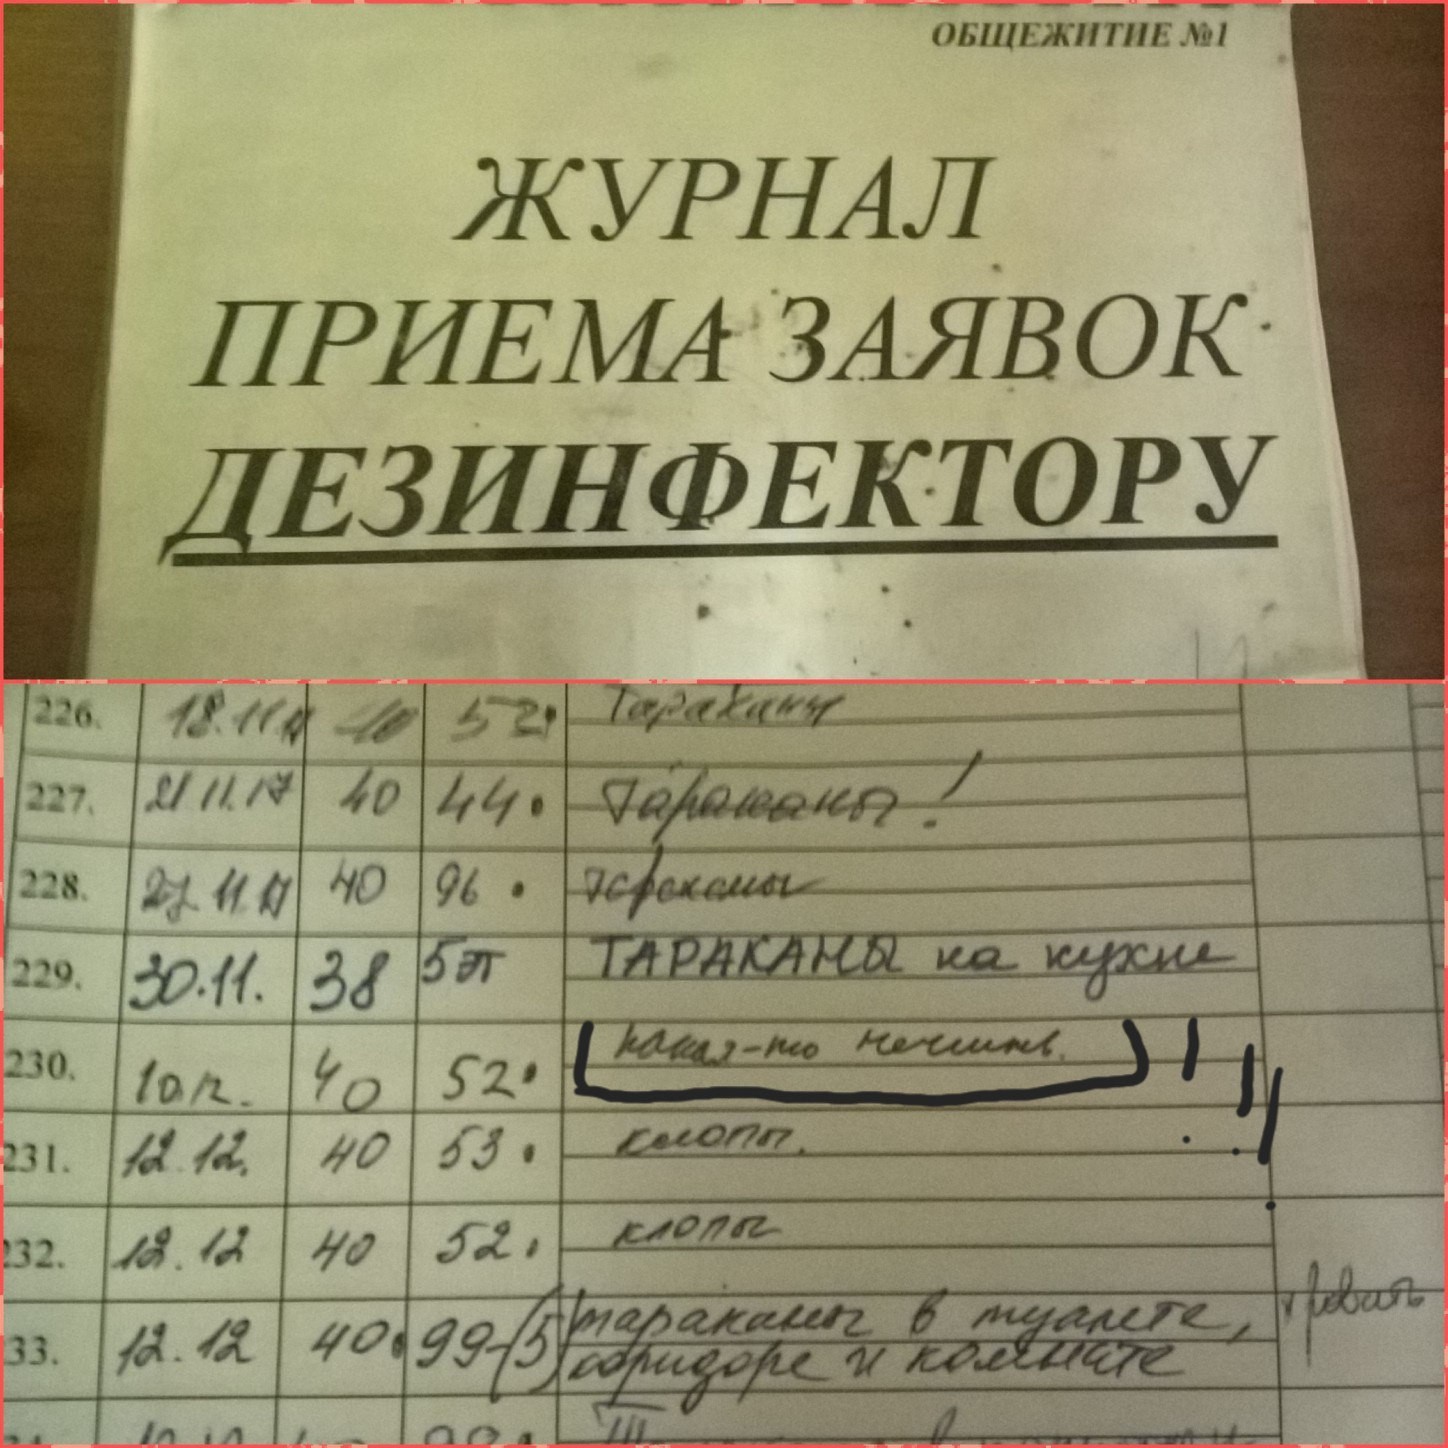 ОБЩЕЖИТИЕ №1
ЖУРНАЛ
ПРИЕМА ЗАЯВОК
ДЕЗИНФЕКТОРУ
226. 18.11.17 40 52. Тараканы
227. 21.11.17 40 44. Тараканы!
228. 27.11.17 40 96. тараканы
229. 30.11. 38 5 эт ТАРАКАНЫ на кухне
230. 10.12. 40 52. какая-то нечисть.
231. 12.12. 40 53. клопы.
232. 12.12 40 52. клопы
33. 12.12 40. 99-(5) тараканы в туалете,
коридоре и комнате